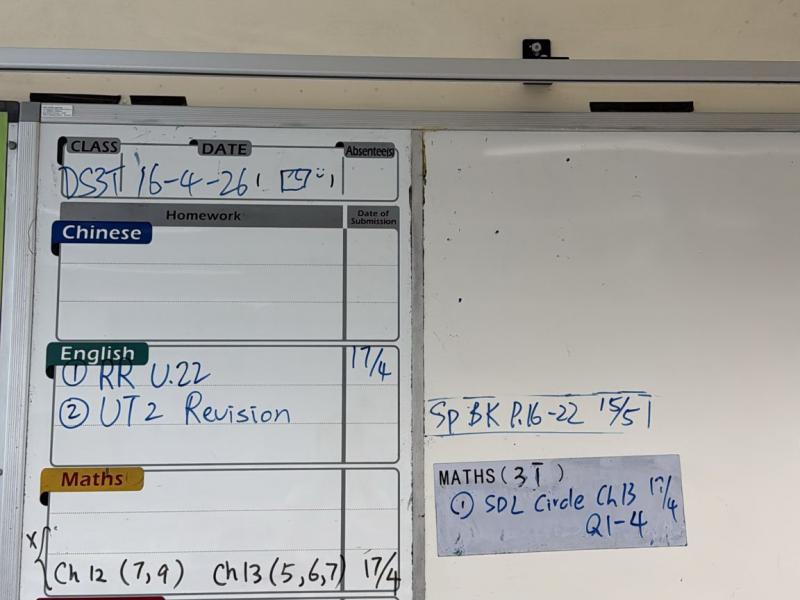 CLASS DATE Absentee(s)
DS3T 16-4-26
Homework Date of Submission
Chinese
English
① RR U.22 17/4
② UT2 Revision
Maths
Ch12 (7,9) Ch13 (5,6,7) 17/4
Sp BK P.16-22 15/5
MATHS (3T)
① SDL Circle Ch13 17/4
Q1-4